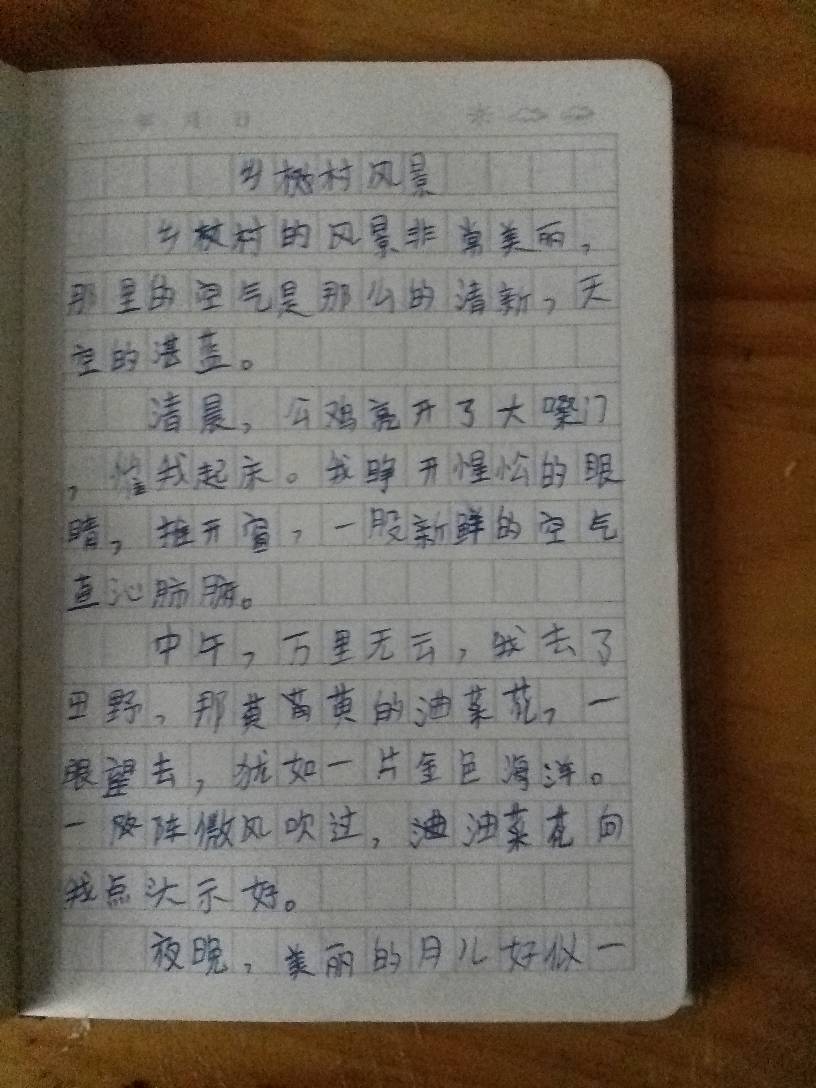 年 月 日
乡村风景
乡村的风景非常美丽，
那里的空气是那么的清新，天
空的湛蓝。
清晨，公鸡亮开了大嗓门
，催我起床。我睁开惺忪的眼
睛，推开窗，一股新鲜的空气
直沁肺腑。
中午，万里无云，我去了
田野，那黄黄的油菜花，一
眼望去，犹如一片金色海洋。
一阵微风吹过，油菜花向
我点头示好。
夜晚，美丽的月儿好似一